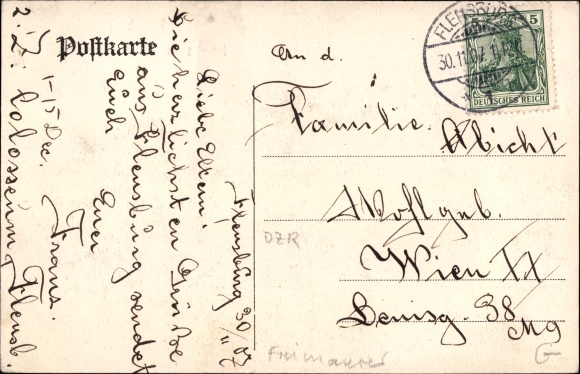 Postkarte
2. Z. Colosseum Flensb.
1-15 Dec.
Flensburg 30/11 07
Liebe Eltern!
Die herzlichsten Grüsse
aus Flensburg sendet
Euch
Euer
Franz.
FLENSBURG
30.11.07
DEUTSCHES REICH
5
An d.
Familie Abicht
Wohlgeb.
Wien XX
38
DZR
Freimaurer